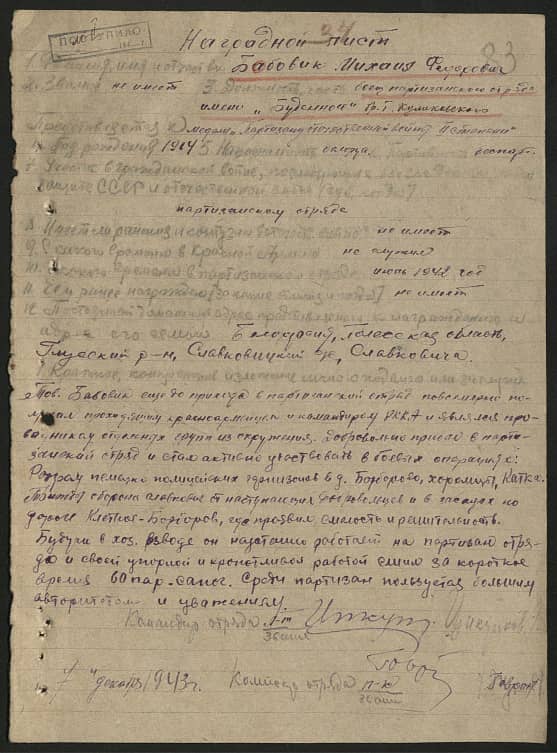 ПОСТУПИЛО
24
Наградной лист
93
1. Фамилия, имя и отчество Бабовик Михаил Федорович
2. Звание не имеет 3. Должность, часть боец партизанского отряда
имени „Буденного" бр.
Представляется к медали „Партизану отечественной войны" степени
4. Год рождения 1904 5. Национальность беспарт.
7. Участие в гражданской войне, последующих
защите СССР и отечественной войне (где, когда)
партизанском отряде
8. Имеет ли ранения и контузии в отечеств. войне не имеет
9. С какого времени в Красной Армии не служил
10. С какого времени в партизанском отряде июнь 1942 год
11. Чем ранее награжден (за какие отличия и когда) не имеет
12. Постоянный домашний адрес представляемого к награждению и
адрес его семьи Белоруссия, Полесская область,
Глусский р-н, Славковицкий с/с, Славковичи.
1. Краткое, конкретное изложение личного подвига или заслуг
Тов. Бабовик еще до прихода в партизанский отряд повседневно по-
могал проходящим красноармейцам и командирам РККА и являлся про-
водником отдельных групп из окружения. Добровольно пришел в парти-
занский отряд и стал активно участвовать в боевых операциях:
Разгром немецко полицейских гарнизонов в д. Борборово, Катка.
оборона Славкович от наступающих добровольцев и в засадах по
дороге Клетное-Борборов, где проявил смелость и решительность.
Будучи в хоз. взводе он работает на партизан отря-
да и своей упорной и кропотливой работой сшил за короткое
время 60 пар. сапог. Среди партизан пользуется большим
авторитетом и уважением
Командир отряда л-т
звание
7" декабря 1943 г. Комиссар отряда п-к
звание